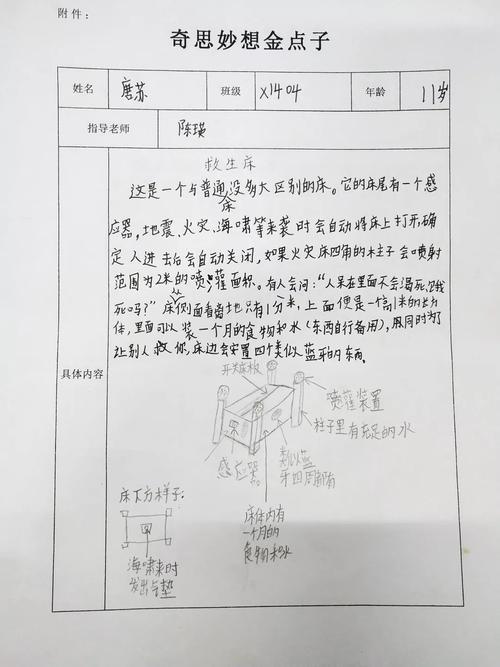 附件：
奇思妙想金点子
姓名 唐苏 班级 X1404 年龄 11岁
指导老师 陈瑛
具体内容
救生床
这是一个与普通床没多大区别的床。它的床尾有一个感
应器，地震、火灾、海啸等来袭时会自动将床上打开，确
定人进去后会自动关闭，如果火灾床四角的柱子会喷射
范围为2米的喷灌面积。有人会问：“人呆在里面不会渴死、饿
死吗？”床侧面看离地只有1分米，上面便是一个高1米的长方
体，里面可以装一个月的食物和水（东西自行备用），同时为了
让别人救你，床边会安置四个类似蓝牙的东西。
开关床板
喷灌装置
柱子里有充足的水
感应器
类似蓝
牙四周都有
床下方样子：
床体内有
一个月的
食物和水
海啸来时
发出气垫